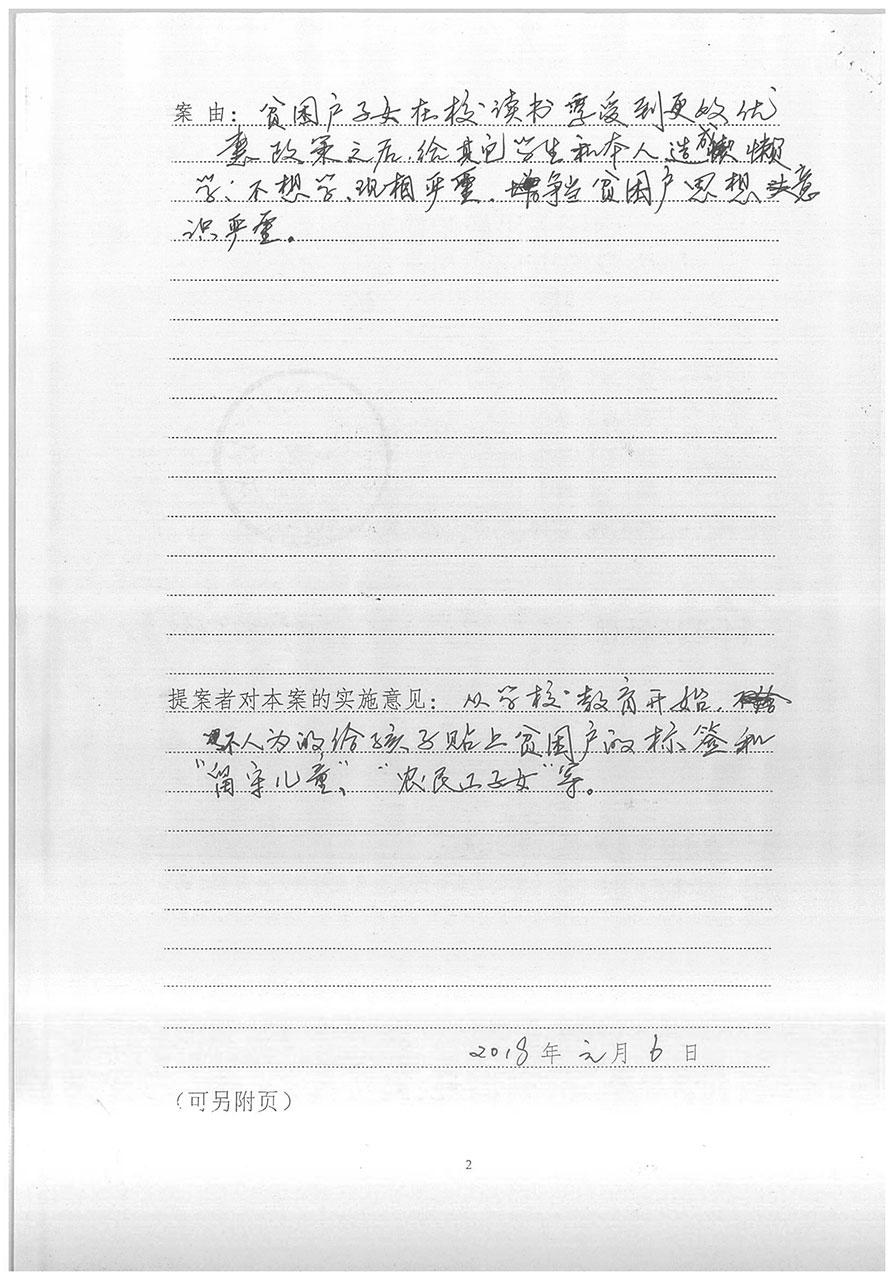 案 由：贫困户子女在校读书享受到更的优
惠政策之后，给其它学生和本人造成懒
学；不想学、现相严重，争当贫困户思想意
识严重。
提案者对本案的实施意见：从学校教育开始，
不人为的给孩子贴上贫困户的标签和
“留守儿童”、“农民工子女”等。
2018年元月6日
（可另附页）
2